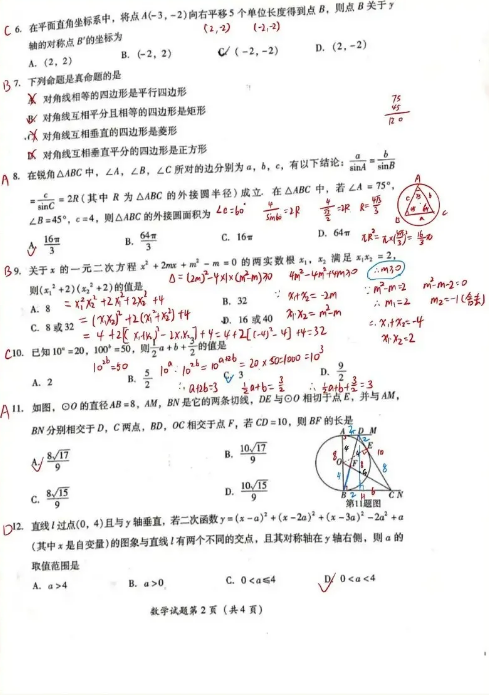 C 6. 在平面直角坐标系中，将点 A(-3，-2)向右平移 5 个单位长度得到点 B，则点 B 关于 y
轴的对称点 B′的坐标为
(2,-2) (-2,-2)
A. (2，2) B. (-2，2) C. (-2，-2) D. (2，-2)
B 7. 下列命题是真命题的是
A. 对角线相等的四边形是平行四边形
B. 对角线互相平分且相等的四边形是矩形
C. 对角线互相垂直的四边形是菱形
D. 对角线互相垂直平分的四边形是正方形
75
45
120
A 8. 在锐角△ABC 中，∠A，∠B，∠C 所对的边分别为 a，b，c，有以下结论：a/sinA = b/sinB
= c/sinC = 2R(其中 R 为△ABC 的外接圆半径)成立. 在△ABC 中，若∠A = 75°，
∠B=45°，c=4，则△ABC 的外接圆面积为 ∠C=60°
A. 16π/3 B. 64π/3 C. 16π D. 64π
B 9. 关于 x 的一元二次方程 x²+2mx+m²-m=0 的两实数根 x₁，x₂ 满足 x₁x₂=2，
则(x₁²+2)(x₂²+2)的值是 Δ=(2m)²-4×1×(m²-m)≥0 4m²-4m²+4m≥0 ∴m≥0
A. 8 =x₁²x₂²+2x₁²+2x₂²+4 B. 32 ∵x₁+x₂=-2m m²-m=2 m²-m-2=0
C. 8 或 32 =(x₁x₂)²+2(x₁²+x₂²)+4 D. 16 或 40 x₁x₂=m²-m ∴m₁=2 m₂=-1(舍去)
=4+2[(x₁+x₂)²-2x₁x₂]+4=4+2[(-4)²-4]+4=32 ∴x₁+x₂=-4
x₁x₂=2
C 10. 已知 10ᵃ=20，100ᵇ=50，则 1/2 a+b+3/2 的值是
10²ᵇ=50 10ᵃ·10²ᵇ=10ᵃ⁺²ᵇ=20×50=1000=10³
A. 2 B. 5/2 C. 3 D. 9/2
∴a+2b=3 1/2a+b=3/2 ∴1/2a+b+3/2=3
A 11. 如图，⊙O 的直径 AB=8，AM，BN 是它的两条切线，DE 与⊙O 相切于点 E，并与 AM，
BN 分别相交于 D，C 两点，BD，OC 相交于点 F，若 CD=10，则 BF 的长是
A. 8√17/9 B. 10√17/9
C. 8√15/9 D. 10√15/9
A D M
E
O F
B C N
第11题图
D 12. 直线 l 过点(0，4)且与 y 轴垂直，若二次函数 y=(x-a)²+(x-2a)²+(x-3a)²-2a²+a
(其中 x 是自变量)的图象与直线 l 有两个不同的交点，且其对称轴在 y 轴右侧，则 a 的
取值范围是
A. a>4 B. a>0 C. 0<a≤4 D. 0<a<4
数学试题第 2 页（共 4 页）